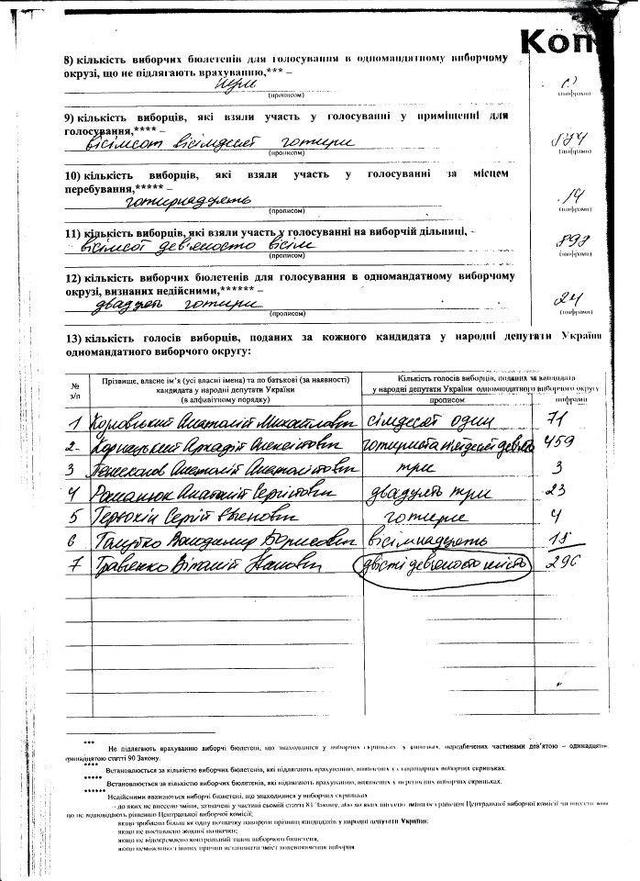 Коп
8) кількість виборчих бюлетенів для голосування в одномандатному виборчому
округу, що не підлягають врахуванню,*** –
нуль 0
(прописом) (цифрами)
9) кількість виборців, які взяли участь у голосуванні у приміщенні для
голосування,**** –
вісімсот вісімдесят чотири 884
(прописом) (цифрами)
10) кількість виборців, які взяли участь у голосуванні за місцем
перебування,***** –
чотирнадцять 14
(прописом) (цифрами)
11) кількість виборців, які взяли участь у голосуванні на виборчій дільниці, -
вісімсот дев'яносто вісім 898
(прописом) (цифрами)
12) кількість виборчих бюлетенів для голосування в одномандатному виборчому
окрузі, визнаних недійсними,****** –
двадцять чотири 24
(прописом) (цифрами)
13) кількість голосів виборців, поданих за кожного кандидата у народні депутати України
одномандатного виборчого округу:
№ з/п
Прізвище, власне ім'я (усі власні імена) та по батькові (за наявності)
кандидата у народні депутати України
(в алфавітному порядку)
Кількість голосів виборців, поданих за кандидата
у народні депутати України одномандатного виборчого округу
прописом цифрами
1 Анатолій Михайлович сімдесят один 71
2 Корнацький Аркадій Олексійович чотириста п'ятдесят дев'ять 459
3 Анатолій Анатолійович три 3
4 Романюк Анатолій Сергійович двадцять три 23
5 Сергій Євгенович чотири 4
6 Володимир Борисович вісімнадцять 18
7 Травянко Віталій Іванович двісті дев'яносто шість 296
***
Не підлягають врахуванню виборчі бюлетені, що знаходилися у виборчих скриньках, у випадках, передбачених частинами дев'ятою – одинадцятою
статті 90 Закону.
****
Встановлюється за кількістю виборчих бюлетенів, які підлягають врахуванню, виявлених у стаціонарних виборчих скриньках.
*****
Встановлюється за кількістю виборчих бюлетенів, які підлягають врахуванню, виявлених у переносних виборчих скриньках.
******
Недійсними вважаються виборчі бюлетені, що знаходилися у виборчих скриньках
що не відповідають рішенню Центральної виборчої комісії;
якщо зроблено більш як одну позначку навпроти прізвищ кандидатів у народні депутати України;
якщо не поставлено жодної позначки;
якщо не відокремлено контрольний талон виборчого бюлетеня,